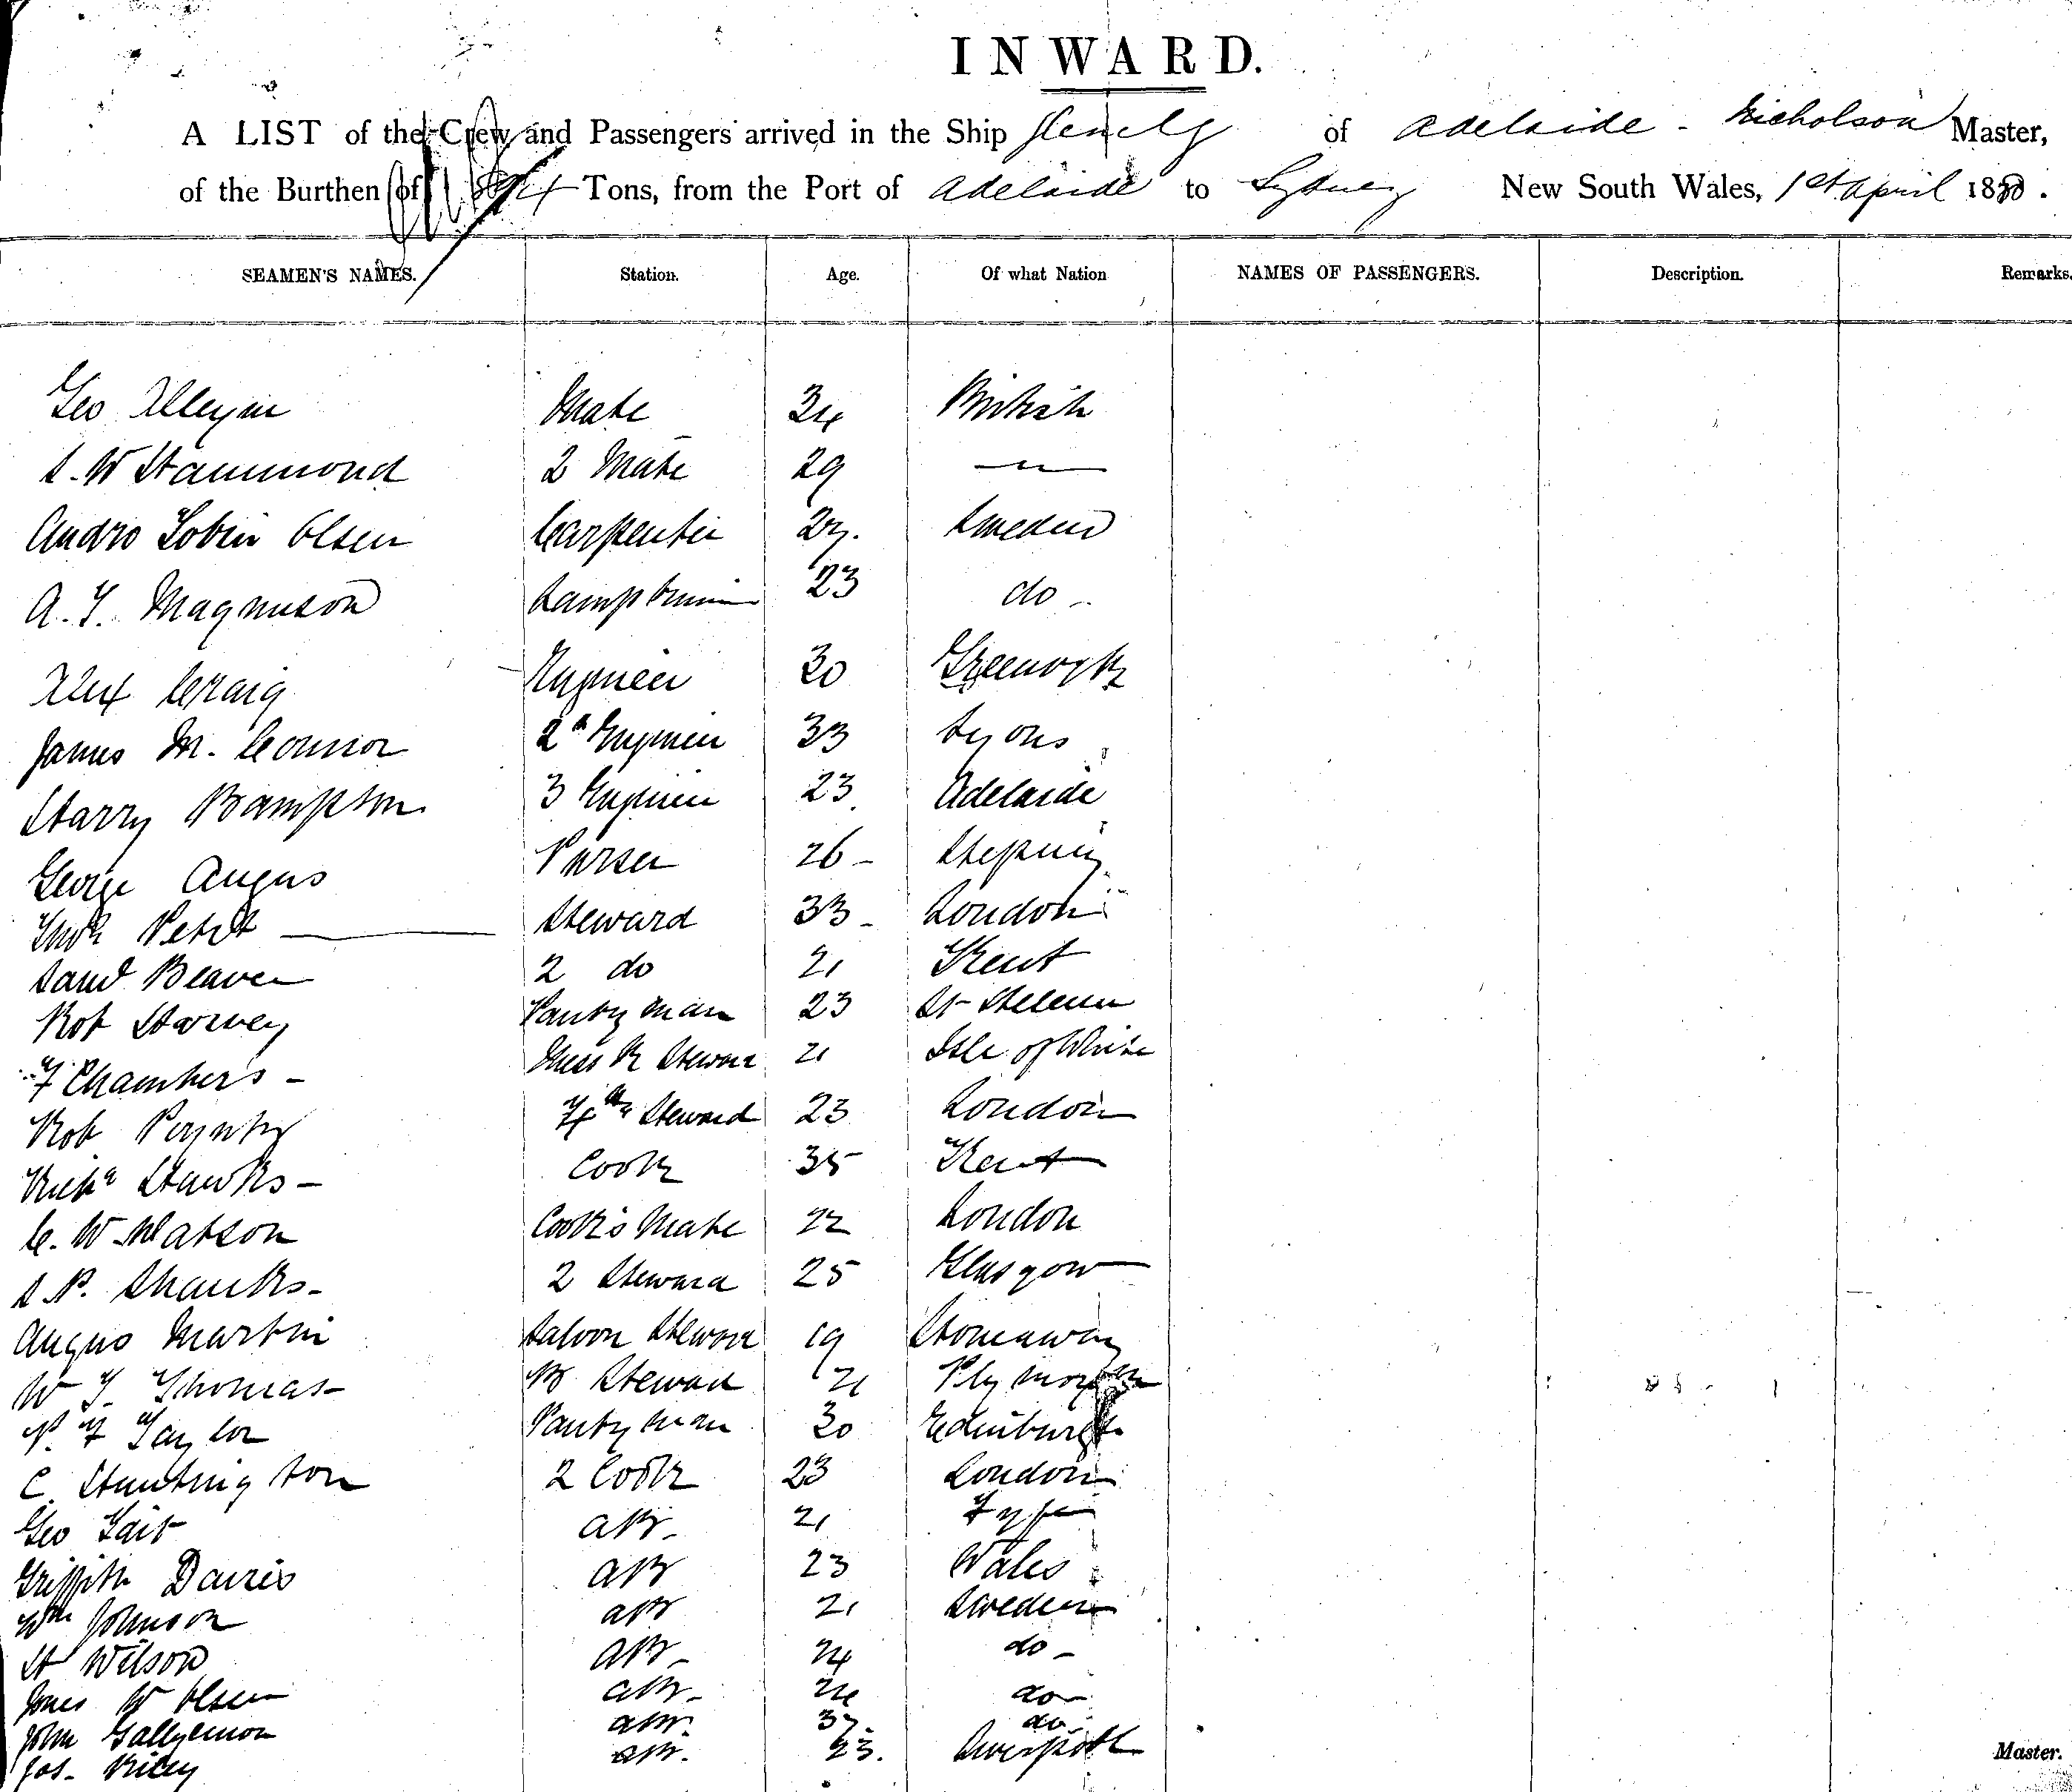 INWARD.
A LIST of the Crew and Passengers arrived in the Ship of Adelaide - Nicholson Master,
of the Burthen of Tons, from the Port of Adelaide to Sydney New South Wales, 1st April 1880.
SEAMEN'S NAMES. Station. Age. Of what Nation NAMES OF PASSENGERS. Description. Remarks.
Geo Alleyne Mate 34 British
S. W Hammond 2 Mate 29 "
Andro Tobin Olsen Carpenter 27. Sweden
A. T. Magnuson Lamptrimmer 23 do
Alex Craig Engineer 30 Greenock
James M. Connor 2d Engineer 33 Lyons
Harry Bampton 3 Engineer 23 Adelaide
George Angus Purser 26 - Stepney
Steward 33 - London
Beaver 2 do 21 Kent
Rob Harvey Pantryman 23 St Helena
F Chambers - Mess R Steward 21 Isle of White
Rob Poynter Steward 23 London
Richd Hawks - Cook 35 Kent
C. W Watson Cook's Mate 22 London
S. P. Shanks - 2 Steward 25 Glasgow
Angus Martin Saloon Steward 19 Stornaway
W T. Thomas B Steward 21 Plymouth
P. F Taylor Pantryman 30 Edinburgh
C. Huntington 2 Cook 23 London
Geo Tait AB 21 Fyfe
Griffith Davies AB 23 Wales
Wm Johnson AB 21 Sweden
H Wilson AB 24 do -
Jones W Olsen AB 24 do
John AB 37 do
Jas. Riley AB 23. Liverpool
Master.